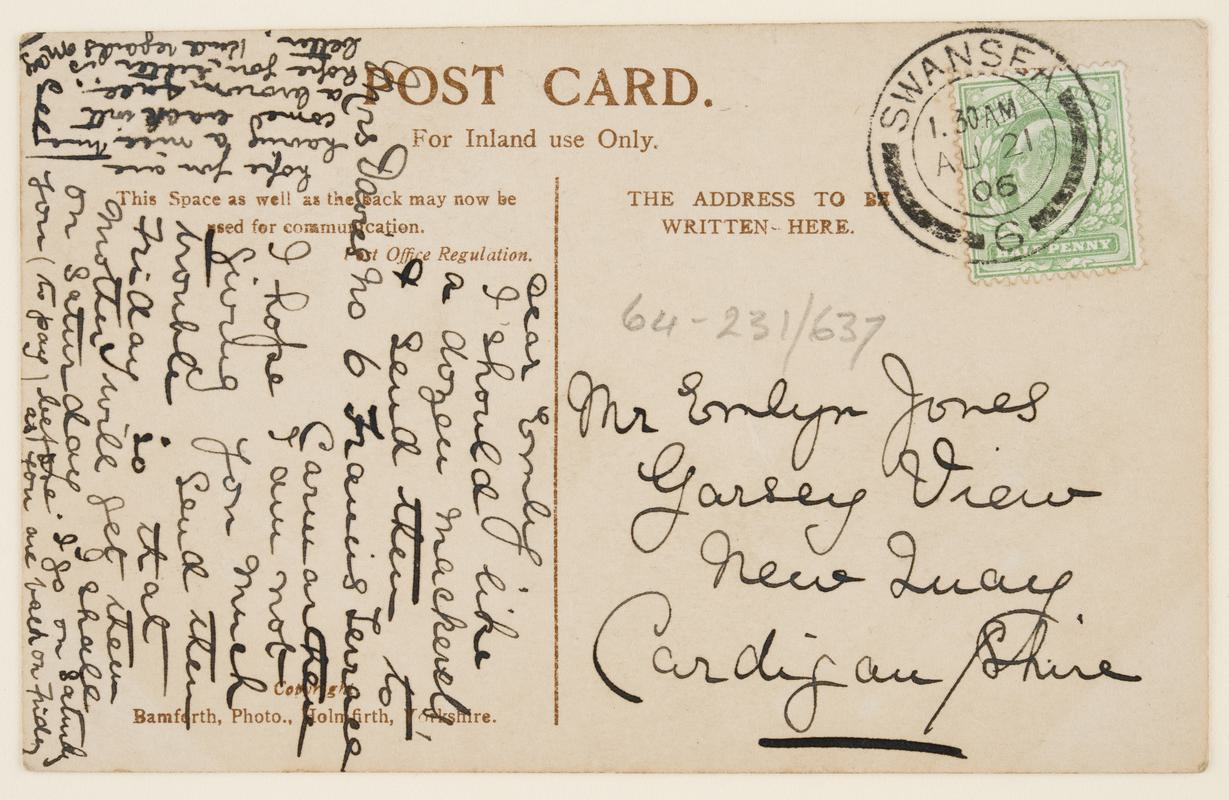 POST CARD.
For Inland use Only.
This Space as well as the Back may now be
used for communication.
Post Office Regulation.
THE ADDRESS TO BE
WRITTEN HERE.
SWANSEA
1.30AM
AU 21
06
6
HALFPENNY
64-231/637
Mr Emlyn Jones
Garsey View
New Quay
Cardigan Shire
Dear Emlyn
I should like
a dozen Mackerel,
& send them to
Mrs Davies No 6 Francis Terrace
Carmarthen
I hope I am not
giving you much
trouble send them
Friday so that
Mother will get them
on Saturday I shall
you (to pay) before I go on Saturday
as you are back on Friday
hope you are
having a nice time
come back wit
a brown face.
hope your is
better, kind regards
Copyright
Bamforth, Photo., Holmfirth, Yorkshire.